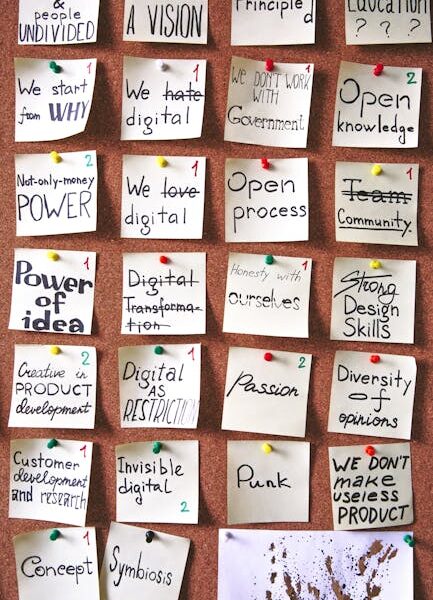 &
people
UNDIVIDED
A VISION
Principle
d
Education
? ? ?
1
We start
from WHY
1
We hate
digital
1
WE DON'T WORK
WITH
Government
2
Open
knowledge
2
Not-only-money
POWER
1
We love
digital
Open
process
1
Team
Community.
1
Power
of
idea
Digital
Transforma-
tion
1
Honesty with
ourselves
Strong
Design
Skills
2
Creative in
PRODUCT
development
1
Digital
AS
RESTRICTION
2
Passion
Diversity
of
opinions
1
Customer
development
and research
Invisible
digital
2
Punk
WE DON'T
make
useless
PRODUCT
1
Concept
Symbiosis